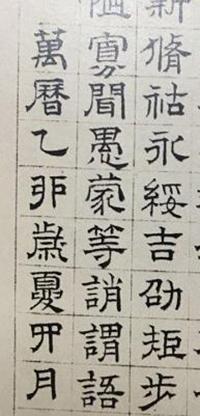 薪脩祜永綏吉劭矩步
陋寡聞愚蒙等誚謂語
萬曆乙丣歲夏四月